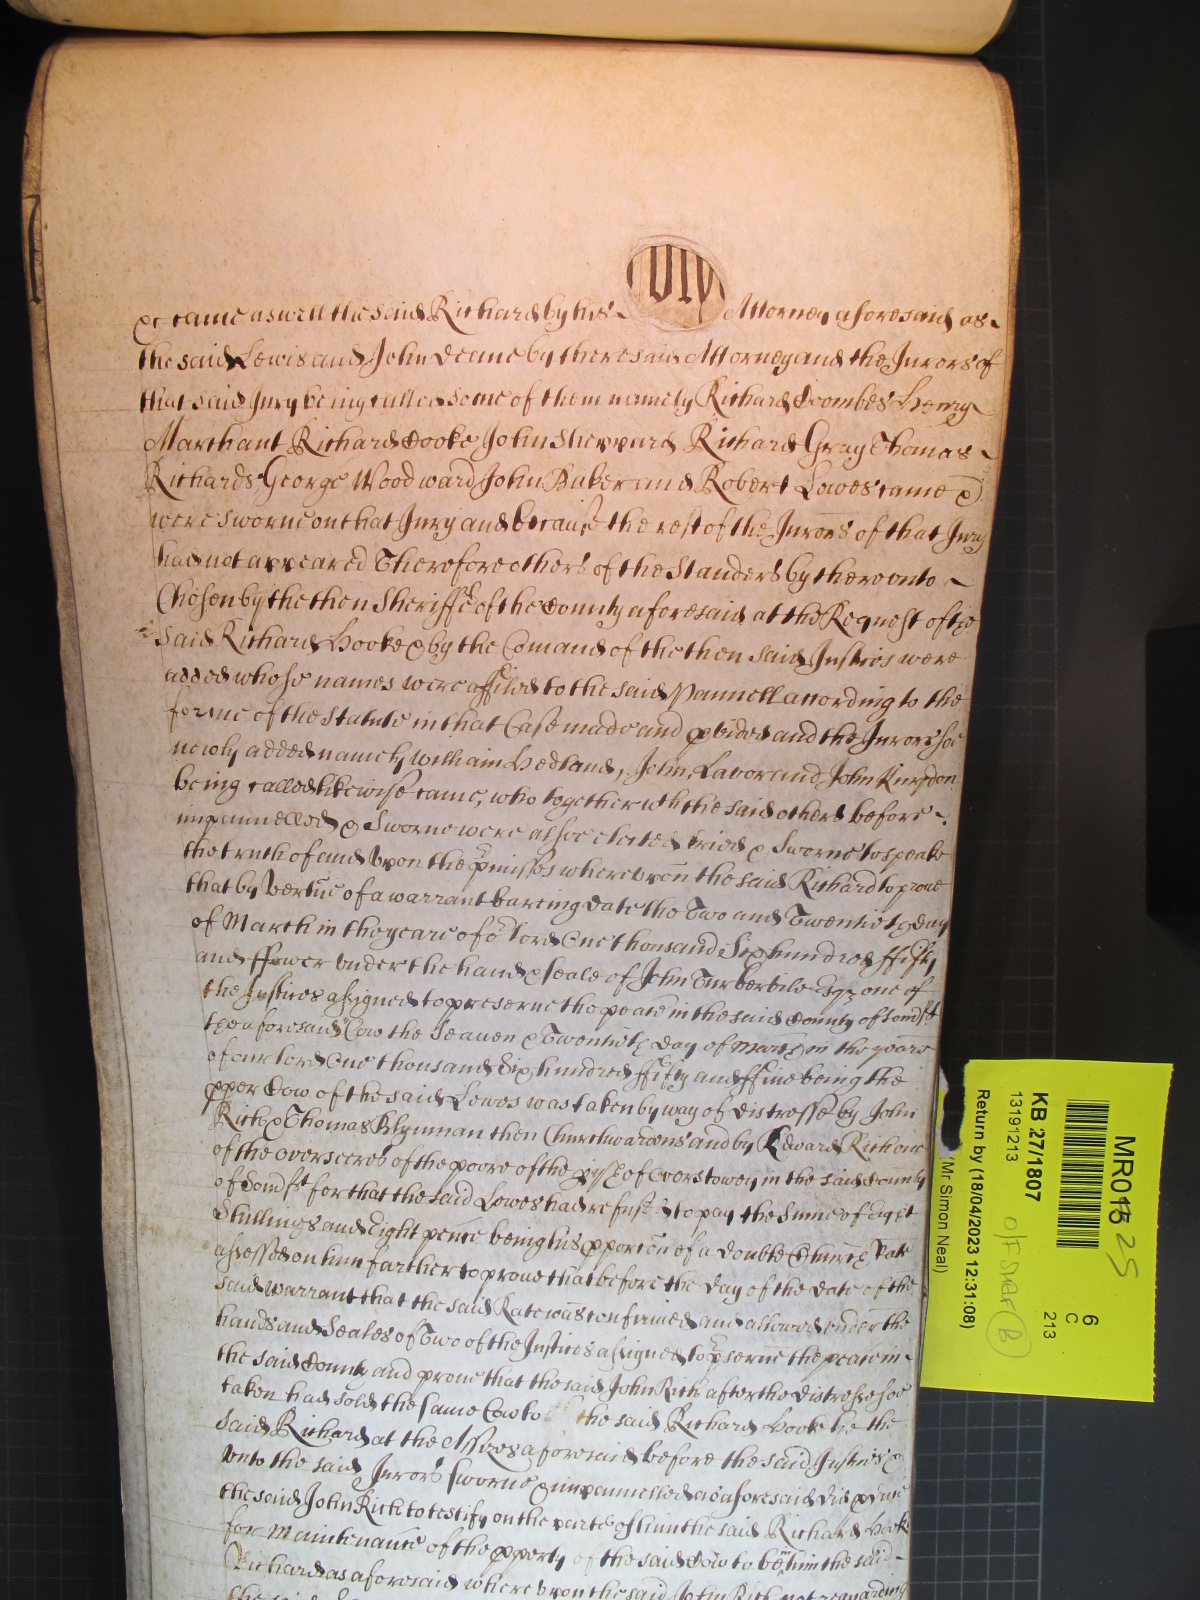 &c came aswell the said Richard by his Attorney aforesaid as
the said Lewis and John Deane by there said Attorney and the Jurors of
that said Jury being called some of them namely Richard Coombes Henry
Marchant Richard Cooke John Sheppard Richard Gray Thomas
Richards George Woodward John Baker and Robert Lowes came &
were sworne on that Jury and because the rest of the Jurors of that Jury
had not appeared Therefore others of the Standers by thereonto
Chosen by the then Sheriffe of the County aforesaid at the Request of the
said Richard Hooke & by the Comand of the then said Justices were
added whose names were affiled to the said Pannell according to the
forme of the Statute in that Case made and pvided and the Jurors soe
newly added namely William Hedland, John Lavor and John
being called likewise came, who together wth the said others before
impannelled & Sworne were alsoe elected tried & Sworne to speake
the truth of and Upon the pmisses whereupon the said Richard to prove
that by Vertue of a warrant beareing date the Two and Twentieth day
of March in the yeare of or lord One thousand Six hundred ffifty
and ffower under the hand & seale of John Turbervile Esqr one of
the Justices assigned to preserve the peace in the said County of Somst
the aforesaid Cow the Seaven & Twentieth day of March in the yeare
of our lord One thousand Six hundred ffifty and ffive being the
pper Cow of the said Lewes was taken by way of distresse by John
Rich & Thomas Blynman then Churchwardens and by Edward Rich one
of the overseeres of the poore of the pish of Overstowey in the said County
of Somst for that the said Lowes had refused to pay the Sume of Eight
Shillings and Eight pence being his pporcon of a double Church Rate
assessed on him farther to prove that before the day of the date of the
said warrant that the said Rate was confirmed and allowed under the
hands and Seales of Two of the Justices assigned to pserve the peace in
the said County and prove that the said John Rich after the distresse soe
taken had sold the same Cow to the said Richard Hooke he the
said Richard at the Assizes aforesaid before the said Justices &
unto the said Jurors sworne & impannelled as aforesaid did pduce
the said John Rich to testify on the parte of him the said Richard Hooke
for Maintenance of the pperty of the said Cow to be in him the said
Richard as aforesaid whereupon the said John Rich not regarding
MR01525
6
C
213
KB 27/1807
13191213
Return by (18/04/2023 12:31:08)
(Mr Simon Neal)
B